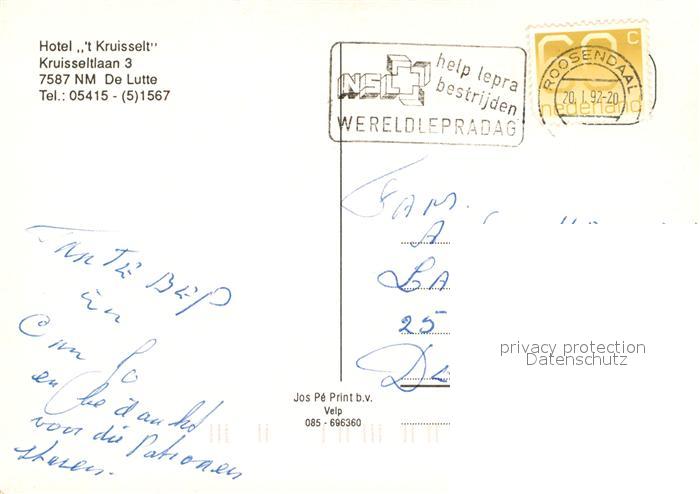 Hotel „'t Kruisselt"
Kruisseltlaan 3
7587 NM De Lutte
Tel.: 05415 - (5)1567
NSL help lepra
bestrijden
WERELDLEPRADAG
60 c
nederland
ROOSENDAAL
20.I.92-20
FAM.
A
LA
25
privacy protection
Datenschutz
TANTE BEP
en
Oom Jo
en bedankt
voor die Patronen
sturen.
Jos Pé Print b.v.
Velp
085 - 696360